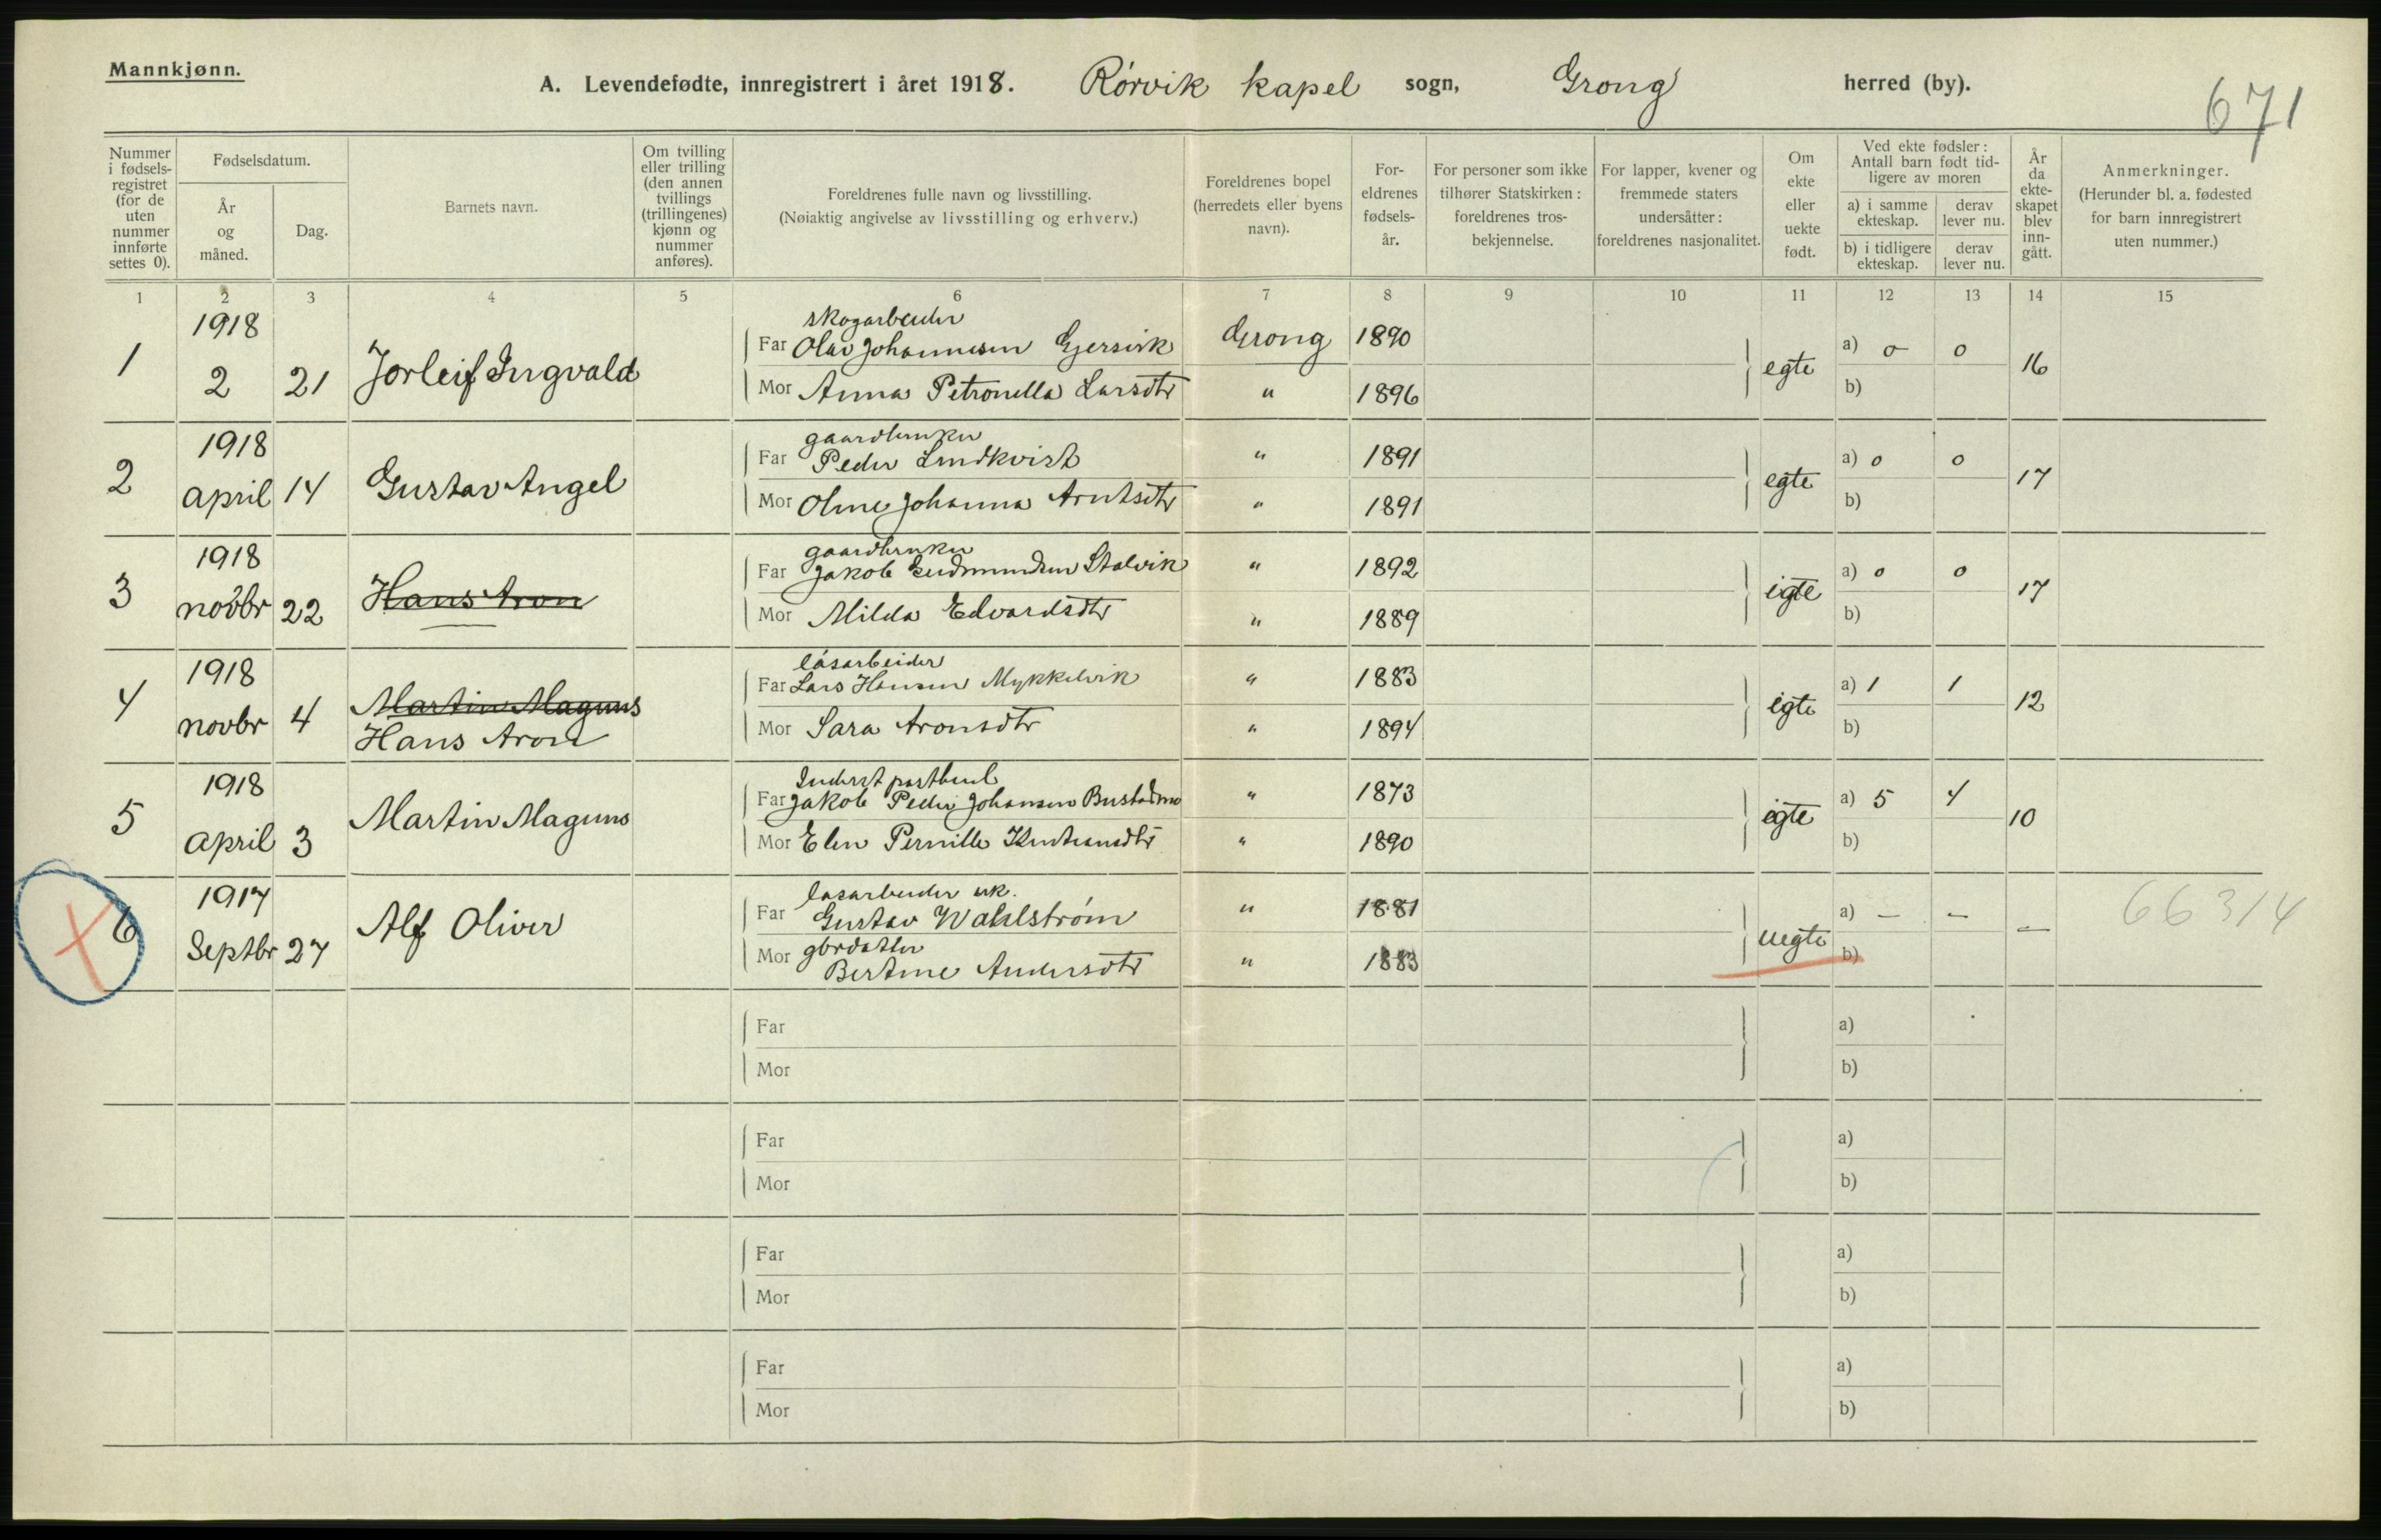 Mannkjønn.
A. Levendefødte, innregistrert i året 1918. Rørvik kapel sogn, Grong herred (by).
671
Nummer i fødsels-registret (for de uten nummer innførte settes 0).
Fødselsdatum.
År og måned.
Dag.
Barnets navn.
Om tvilling eller trilling (den annen tvillings (trillingenes) kjønn og nummer anføres).
Foreldrenes fulle navn og livsstilling.
(Nøiaktig angivelse av livsstilling og erhverv.)
Foreldrenes bopel (herredets eller byens navn).
For-eldrenes fødsels-år.
For personer som ikke tilhører Statskirken: foreldrenes tros-bekjennelse.
For lapper, kvener og fremmede staters undersåtter: foreldrenes nasjonalitet.
Om ekte eller uekte født.
Ved ekte fødsler: Antall barn født tid-ligere av moren
a) i samme ekteskap.
derav lever nu.
b) i tidligere ekteskap.
derav lever nu.
År da ekte-skapet blev inn-gått.
Anmerkninger.
(Herunder bl. a. fødested for barn innregistrert uten nummer.)
1 2 3 4 5 6 7 8 9 10 11 12 13 14 15
1 1918 2 21 Jorleif Ingvald
skogarbeider
Far Olav Johannesen Gjersvik Grong 1890
Mor Anna Petronella Larsdtr " 1896
egte a) 0 0 16
b)
2 1918 april 14 Gustav Angel
gaardbruker
Far Peder Lindkvist " 1891
Mor Oline Johanna Arntsdtr " 1891
egte a) 0 0 17
b)
3 1918 novbr 22 Hans Aron
gaardbruker
Far Jakob Gudmundsen Stalvik " 1892
Mor Milda Edvardsdtr " 1889
egte a) 0 0 17
b)
4 1918 novbr 4 Martin Magnus
Hans Aron
løsarbeider
Far Lars Hansen Mykkelvik " 1883
Mor Sara Aronsdtr " 1894
egte a) 1 1 12
b)
5 1918 april 3 Martin Magnus
Inderst
Far Jakob Peder Johansen Bustadmo " 1873
Mor Elen Pernille " 1890
egte a) 5 4 10
b)
6 1917 Septbr 27 Alf Oliver
løsarbeider uk.
Far Gustav Wahlstrøm " 1881
Mor gbrdatter
Bertine Andersdtr " 1883
uegte a) — — —
b)
66314
Far
Mor
a)
b)
Far
Mor
a)
b)
Far
Mor
a)
b)
Far
Mor
a)
b)